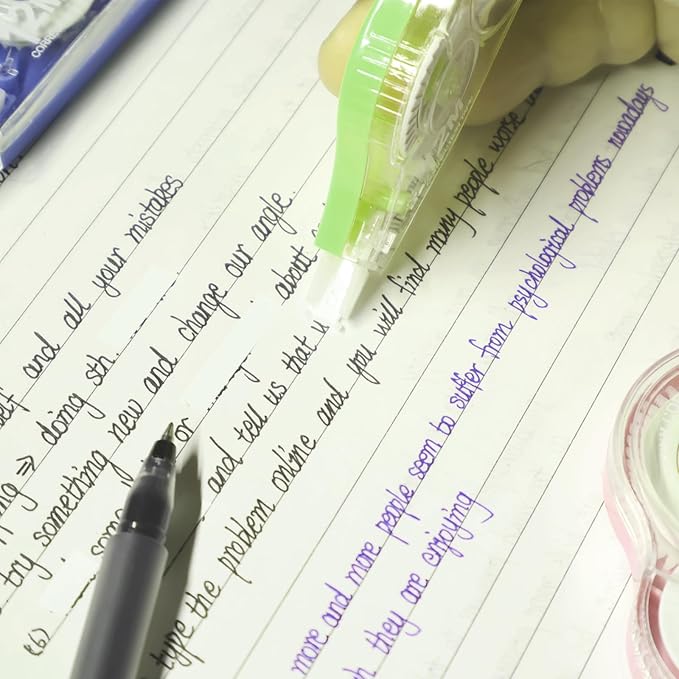 CORR
and all your mistakes
doing sth.
try something new and change our angle.
and tell us that about
type the problem online and you will find many people worse
more and more people seem to suffer from psychological problems nowadays
they are enjoying